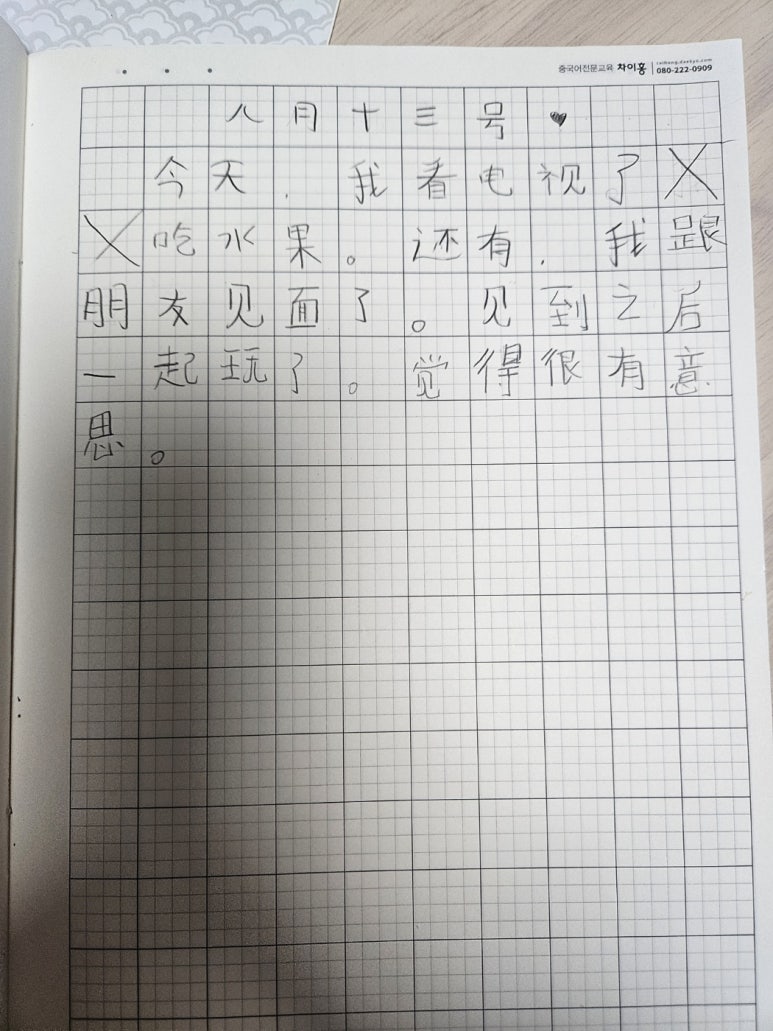 중국어전문교육 차이홍 080-222-0909
八月十三号♥
今天，我看电视了
吃水果。还有，我跟
朋友见面了。见到之后
一起玩了。觉得很有意
思。